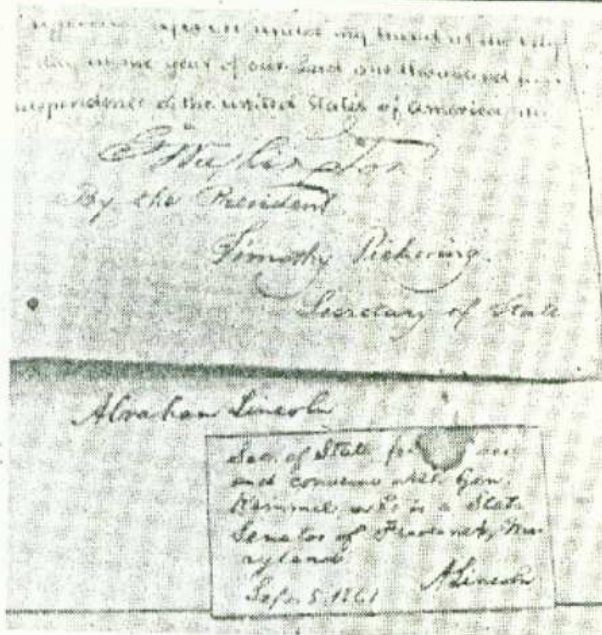 under my hand at the City
day in the year of our Lord one thousand
independence of the united States of America, the
G Washington
By the President
Timothy Pickering.
Secretary of State
Abraham Lincoln
Sec. of State see
and converse with Gen.
who is a State
Senator of Ma
ryland
Sep. 5. 1861 A Lincoln